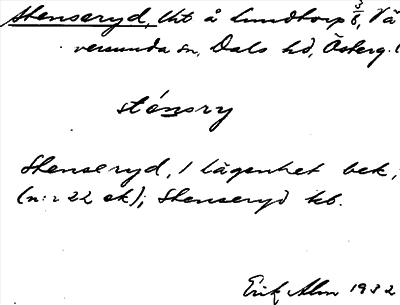 Stenseryd, Uht å Lundtorp 3/8, Vä
versunda sn, Dals hd, Österg.
sténsry
Stenseryd, 1 lägenhet bek,
(n:r 22 ek); Stenseryd kb.
Erik Alm 1932